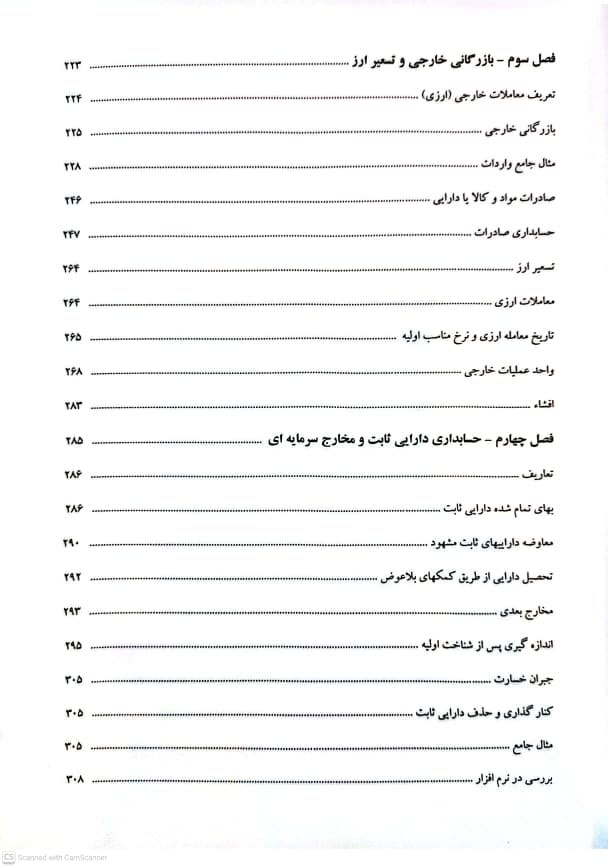 فصل سوم - بازرگانی خارجی و تسعیر ارز ........ ۲۲۳
تعریف معاملات خارجی (ارزی) ........ ۲۲۴
بازرگانی خارجی ........ ۲۲۵
مثال جامع واردات ........ ۲۲۸
صادرات مواد و کالا یا دارایی ........ ۲۴۶
حسابداری صادرات ........ ۲۴۷
تسعیر ارز ........ ۲۶۴
معاملات ارزی ........ ۲۶۴
تاریخ معامله ارزی و نرخ مناسب اولیه ........ ۲۶۵
واحد عملیات خارجی ........ ۲۶۸
افشاء ........ ۲۸۳
فصل چهارم - حسابداری دارایی ثابت و مخارج سرمایه ای ........ ۲۸۵
تعاریف ........ ۲۸۶
بهای تمام شده دارایی ثابت ........ ۲۸۶
معاوضه داراییهای ثابت مشهود ........ ۲۹۰
تحصیل دارایی از طریق کمکهای بلاعوض ........ ۲۹۲
مخارج بعدی ........ ۲۹۳
اندازه گیری پس از شناخت اولیه ........ ۲۹۵
جبران خسارت ........ ۳۰۵
کنار گذاری و حذف دارایی ثابت ........ ۳۰۵
مثال جامع ........ ۳۰۵
بررسی در نرم افزار ........ ۳۰۸
CS Scanned with CamScanner